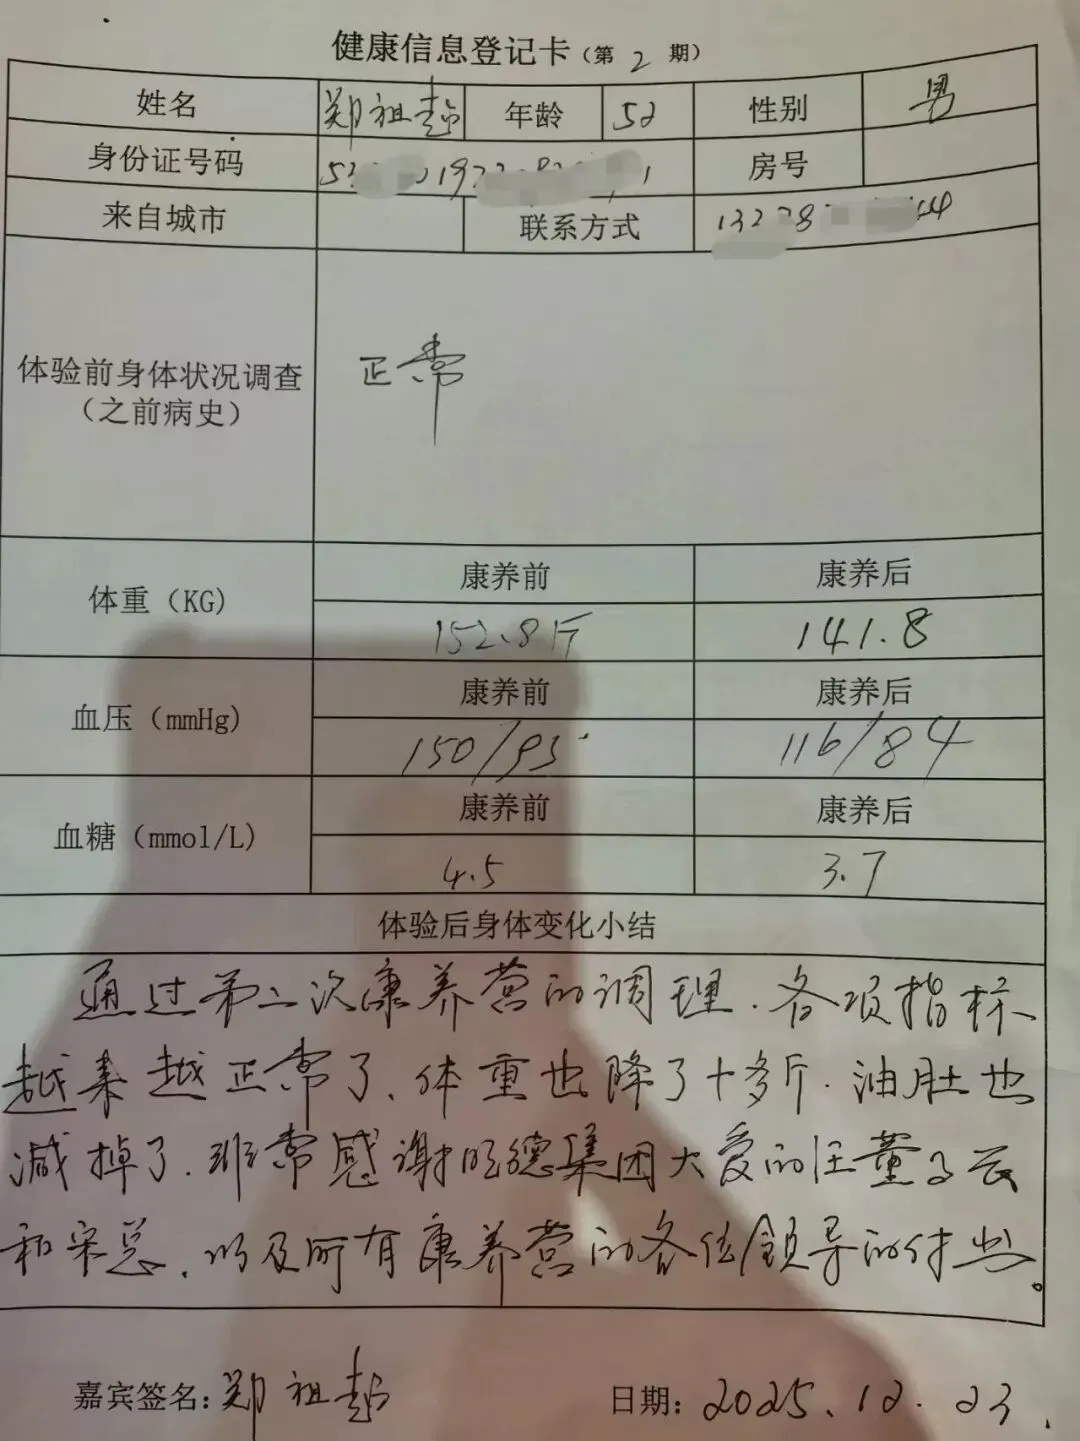 健康信息登记卡（第 2 期）
姓名 郑祖超 年龄 52 性别 男
身份证号码 房号
来自城市 联系方式
体验前身体状况调查
（之前病史）
正常
体重（KG） 康养前 康养后
152.8斤 141.8
血压（mmHg） 康养前 康养后
150/95 116/84
血糖（mmol/L） 康养前 康养后
4.5 3.7
体验后身体变化小结
通过第二次康养营的调理、各项指标
越来越正常了、体重也降了十多斤.油肚也
减掉了.非常感谢旺德集团大爱的汪董
和宋总、以及所有康养营的各位领导的付出。
嘉宾签名：郑祖超 日期：2025.12.23.